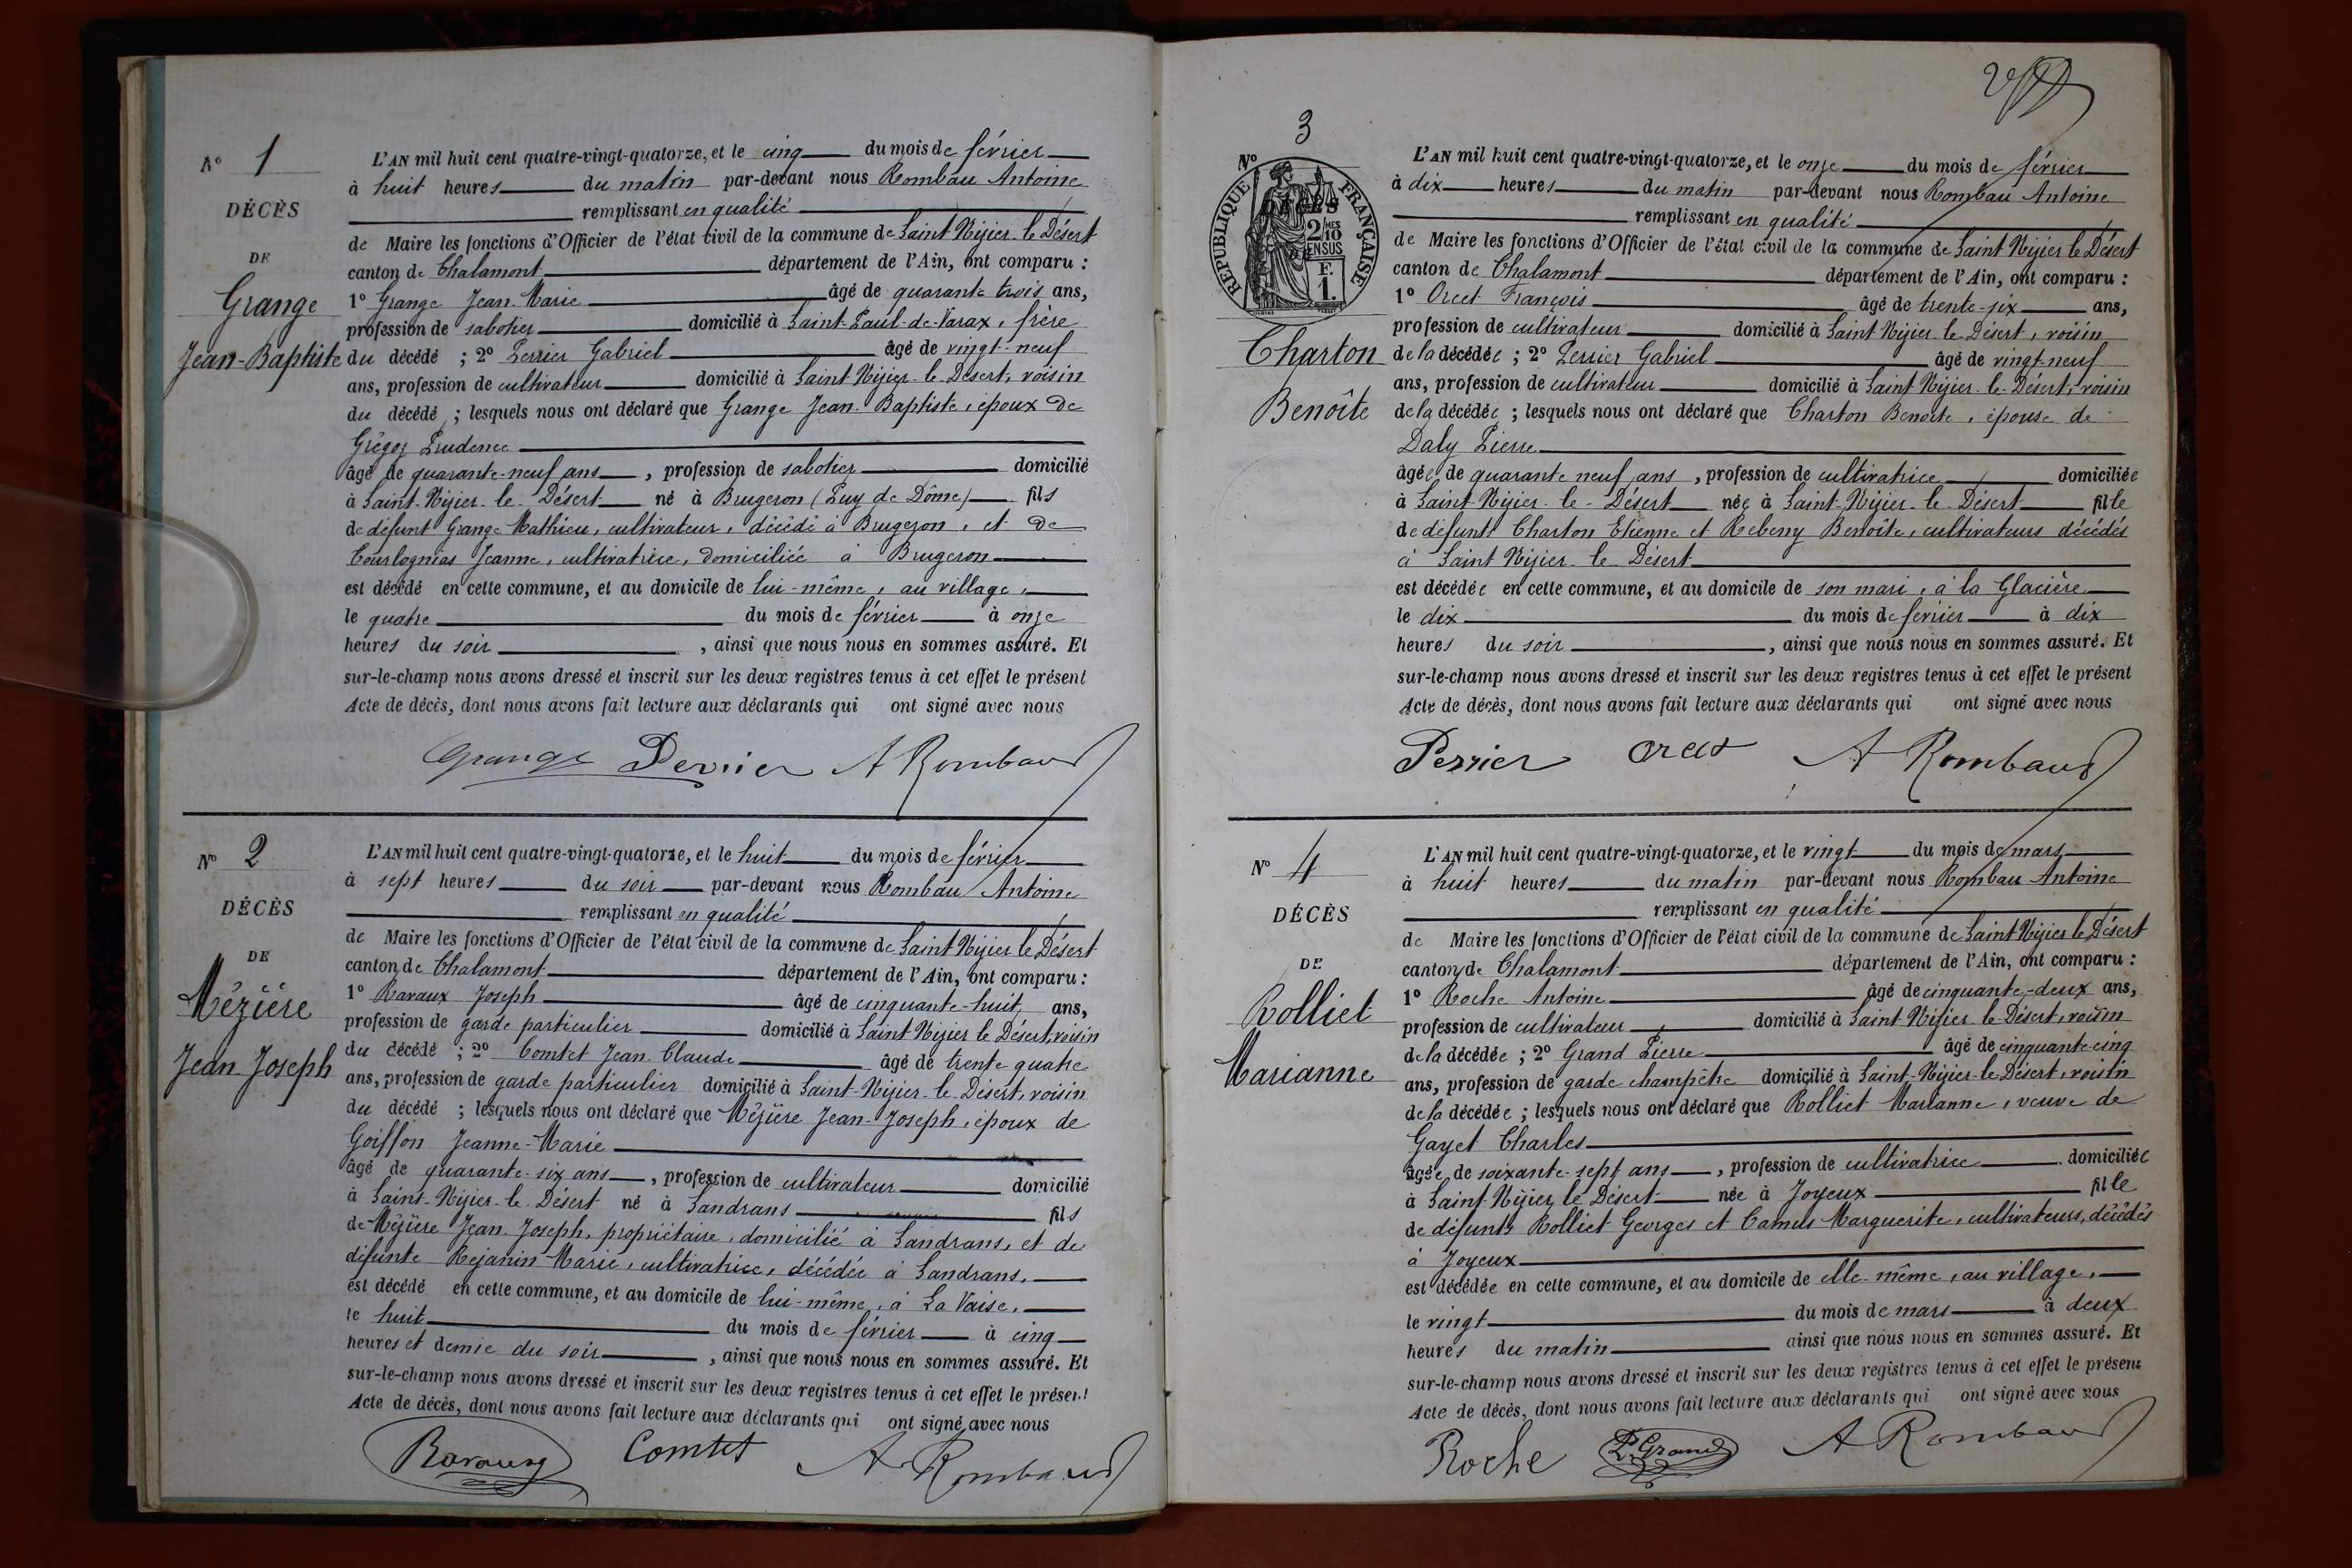 N° 1
DÉCÈS
DE
Grange
Jean-Baptiste
L'AN mil huit cent quatre-vingt-quatorze, et le cinq du mois de février
à huit heures du matin par-devant nous Rombau Antoine
remplissant en qualité
de Maire les fonctions d'Officier de l'état civil de la commune de Saint Nizier le Désert
canton de Chalamont département de l'Ain, ont comparu :
1° Grange Jean-Marie âgé de quarante trois ans,
profession de sabotier domicilié à Saint-Paul-de-Varax, frère
du décédé ; 2° Perrier Gabriel âgé de vingt-neuf
ans, profession de cultivateur domicilié à Saint Nizier-le-Désert, voisin
du décédé ; lesquels nous ont déclaré que Grange Jean-Baptiste, époux de
Grégoz Prudence
âgé de quarante-neuf ans, profession de sabotier domicilié
à Saint-Nizier-le-Désert né à Brugeron (Puy de Dôme) fils
de défunt Grange Mathieu, cultivateur, décédé à Brugeron, et de
Jeanne, cultivatrice, domiciliée à Brugeron
est décédé en cette commune, et au domicile de lui-même, au village,
le quatre du mois de février à onze
heures du soir, ainsi que nous nous en sommes assuré. Et
sur-le-champ nous avons dressé et inscrit sur les deux registres tenus à cet effet le présent
Acte de décès, dont nous avons fait lecture aux déclarants qui ont signé avec nous
Grange Perrier A Rombaud
N° 2
DÉCÈS
DE
Mézière
Jean Joseph
L'AN mil huit cent quatre-vingt-quatorze, et le huit du mois de février
à sept heures du soir par-devant nous Rombau Antoine
remplissant en qualité
de Maire les fonctions d'Officier de l'état civil de la commune de Saint Nizier le Désert
canton de Chalamont département de l'Ain, ont comparu :
1° Ravaux Joseph âgé de cinquante-huit ans,
profession de garde particulier domicilié à Saint Nizier le Désert, voisin
du décédé ; 2° Comtet Jean-Claude âgé de trente quatre
ans, profession de garde particulier domicilié à Saint-Nizier-le-Désert, voisin
du décédé ; lesquels nous ont déclaré que Mézière Jean-Joseph, époux de
Goiffon Jeanne-Marie
âgé de quarante-six ans, profession de cultivateur domicilié
à Saint-Nizier-le-Désert né à Sandrans fils
de Mézière Jean-Joseph, propriétaire, domicilié à Sandrans, et de
défunte Rejanin Marie, cultivatrice, décédée à Sandrans,
est décédé en cette commune, et au domicile de lui-même, à La Vaise,
le huit du mois de février à cinq
heures et demie du soir, ainsi que nous nous en sommes assuré. Et
sur-le-champ nous avons dressé et inscrit sur les deux registres tenus à cet effet le présent
Acte de décès, dont nous avons fait lecture aux déclarants qui ont signé avec nous
Ravaux Comtet A Rombaud
3
N°
RÉPUBLIQUE FRANÇAISE
2/10
EN SUS
F.
1.
Charton
Benoîte
L'AN mil huit cent quatre-vingt-quatorze, et le onze du mois de février
à dix heures du matin par-devant nous Rombau Antoine
remplissant en qualité
de Maire les fonctions d'Officier de l'état civil de la commune de Saint Nizier le Désert
canton de Chalamont département de l'Ain, ont comparu :
1° Orcet François âgé de trente-six ans,
profession de cultivateur domicilié à Saint-Nizier-le-Désert, voisin
de la décédée ; 2° Perrier Gabriel âgé de vingt-neuf
ans, profession de cultivateur domicilié à Saint Nizier-le-Désert, voisin
de la décédée ; lesquels nous ont déclaré que Charton Benoîte, épouse de
Daly Pierre
âgée de quarante neuf ans, profession de cultivatrice domiciliée
à Saint-Nizier-le-Désert née à Saint-Nizier-le-Désert fille
de défunts Charton Etienne et Rebeny Benoîte, cultivateurs décédés
à Saint Nizier-le-Désert
est décédée en cette commune, et au domicile de son mari, à la Glacière
le dix du mois de février à dix
heures du soir, ainsi que nous nous en sommes assuré. Et
sur-le-champ nous avons dressé et inscrit sur les deux registres tenus à cet effet le présent
Acte de décès, dont nous avons fait lecture aux déclarants qui ont signé avec nous
Perrier Orcet A Rombaud
N° 4
DÉCÈS
DE
Rolliet
Marianne
L'AN mil huit cent quatre-vingt-quatorze, et le vingt du mois de mars
à huit heures du matin par-devant nous Rombau Antoine
remplissant en qualité
de Maire les fonctions d'Officier de l'état civil de la commune de Saint Nizier le Désert
canton de Chalamont département de l'Ain, ont comparu :
1° Roche Antoine âgé de cinquante-deux ans,
profession de cultivateur domicilié à Saint-Nizier-le-Désert, voisin
de la décédée ; 2° Grand Pierre âgé de cinquante cinq
ans, profession de garde champêtre domicilié à Saint-Nizier-le-Désert, voisin
de la décédée ; lesquels nous ont déclaré que Rolliet Marianne, veuve de
Gayet Charles
âgée de soixante-sept ans, profession de cultivatrice domiciliée
à Saint-Nizier le Désert née à Joyeux fille
de défunts Rolliet Georges et Camus Marguerite, cultivateurs, décédés
à Joyeux
est décédée en cette commune, et au domicile de elle-même, au village,
le vingt du mois de mars à deux
heures du matin ainsi que nous nous en sommes assuré. Et
sur-le-champ nous avons dressé et inscrit sur les deux registres tenus à cet effet le présent
Acte de décès, dont nous avons fait lecture aux déclarants qui ont signé avec nous
Roche P. Grand A Rombaud